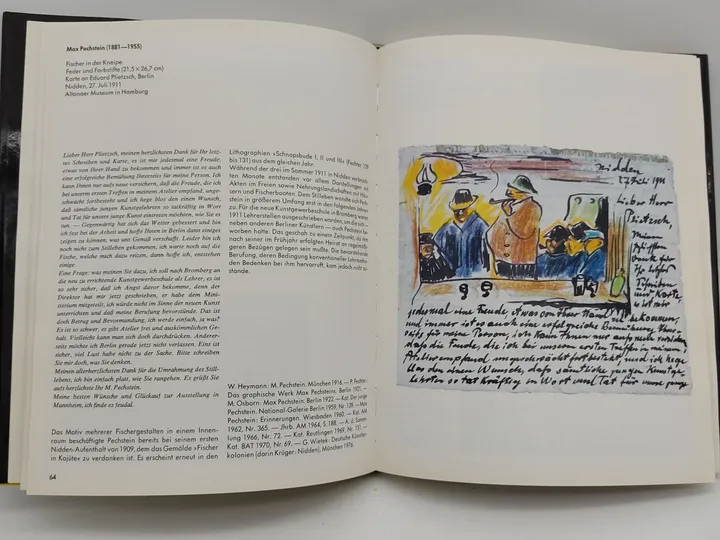 Max Pechstein (1881—1955)
Fischer in der Kneipe
Feder und Farbstifte (21,5 × 26,7 cm)
Karte an Eduard Plietzsch, Berlin
Nidden, 27. Juli 1911
Altonaer Museum in Hamburg
Lieber Herr Plietzsch, meinen herzlichsten Dank für Ihr letz-
tes Schreiben und Karte, es ist mir jedesmal eine Freude,
etwas von Ihrer Hand zu bekommen und immer ist es auch
eine erfolgreiche Bemühung Ihrerseits für meine Person. Ich
kann Ihnen nur aufs neue versichern, daß die Freude, die ich
bei unserem ersten Treffen in meinem Atelier empfand, unge-
schwächt fortbesteht und ich hege blos den einen Wunsch,
daß sämtliche jungen Kunstgelehrten so tatkräftig in Wort
und Tat für unsre junge Kunst einsetzen möchten, wie Sie es
tun. — Gegenwärtig hat sich das Wetter gebessert und ich
bin fest bei der Arbeit und hoffe Ihnen in Berlin dann einiges
zeigen zu können, was uns Genuß verschafft. Leider bin ich
noch nicht zum Stilleben gekommen, ich warte noch auf die
Fische, welche mich dazu reizen, dann hoffe ich, entstehen
einige.
Eine Frage: was meinen Sie dazu, ich soll nach Bromberg an
die neu zu errichtende Kunstgewerbeschule als Lehrer, es ist
so sehr sicher, daß ich Angst davor bekomme, denn der
Direktor hat mir jetzt geschrieben, er habe dem Mini-
sterium mitgeteilt, ich würde nicht im Sinne der neuen Kunst
unterrichten und daß meine Berufung bevorstände. Das ist
doch Betrug und Bevormundung, ich werde einfach, ja was?
Es ist so schwer, es gibt Atelier frei und auskömmlichen Ge-
halt. Vielleicht kann man sich doch durchdrücken. Anderer-
seits möchte ich Berlin gerade jetzt nicht verlassen. Eins ist
sicher, viel Lust habe nicht zu der Sache. Bitte schreiben
Sie mir doch, was Sie denken.
Meinen allerherzlichsten Dank für die Umrahmung des Still-
lebens, ich bin einfach platt, wie Sie rangehen. Es grüßt Sie
aufs herzlichste Ihr M. Pechstein.
Meine besten Wünsche und Glückauf zur Ausstellung in
Mannheim, ich finde es feudal.
Das Motiv mehrerer Fischergestalten in einem Innen-
raum beschäftigte Pechstein bereits bei seinem ersten
Nidden-Aufenthalt von 1909, dem das Gemälde »Fischer
in Kajüte« zu verdanken ist. Es erscheint erneut in den
64
Lithographien »Schnapsbude I, II und III« (Fechter 129
bis 131) aus dem gleichen Jahr.
Während der drei im Sommer 1911 in Nidden verbrach-
ten Monate entstanden vor allem Darstellungen mit
Akten im Freien sowie Nehrungslandschaften mit Häu-
sern und Fischerbooten. Dem Stilleben wandte sich Pech-
stein in größerem Umfang erst in den folgenden Jahren
zu. Für die neue Kunstgewerbeschule in Bromberg waren
1911 Lehrerstellen ausgeschrieben worden, um die sich —
neben anderen Berliner Künstlern — auch Pechstein be-
worben hatte. Das geschah in einem Zeitpunkt, da ihm
nach seiner im Frühjahr erfolgten Heirat an regelmäßi-
geren Bezügen gelegen sein mußte. Die bevorstehende
Berufung, deren Bedingung konventioneller Lehrmetho-
den Bedenken bei ihm hervorruft, kam jedoch nicht zu-
stande.
W. Heymann: M. Pechstein. München 1916. — P. Fechter:
Das graphische Werk Max Pechsteins. Berlin 1921. —
M. Osborn: Max Pechstein. Berlin 1922. — Kat. Der junge
Pechstein. National-Galerie Berlin 1959, Nr. 139. — Max
Pechstein: Erinnerungen. Wiesbaden 1960. — Kat. AM
1962, Nr. 365. — Jhrb. AM 1964, S. 188. — A. d. Samm-
lung 1966, Nr. 72. — Kat. Reutlingen 1969, Nr. 151. —
Kat. BAT 1970, Nr. 69. — G. Wietek: Deutsche Künstler-
kolonien (darin Krüger: Nidden), München 1976.
Nidden
27 Juli 1911
Lieber Herr
Plietzsch,
meinen
Dank für
Ihr letztes
Schreiben
und Karte,
es ist mir
jedesmal eine Freude, etwas von Ihrer Hand zu bekommen,
und immer ist es auch eine erfolgreiche Bemühung Ihrer-
seits für meine Person, ich kann Ihnen nur aufs neue versichern
daß die Freude, die ich bei unserem ersten Treffen in meinem
Atelier empfand ungeschwächt fortbesteht, und ich hege
blos den einen Wunsch, daß sämtliche jungen Kunstge-
lehrten so tatkräftig in Wort und Tat für unsre junge